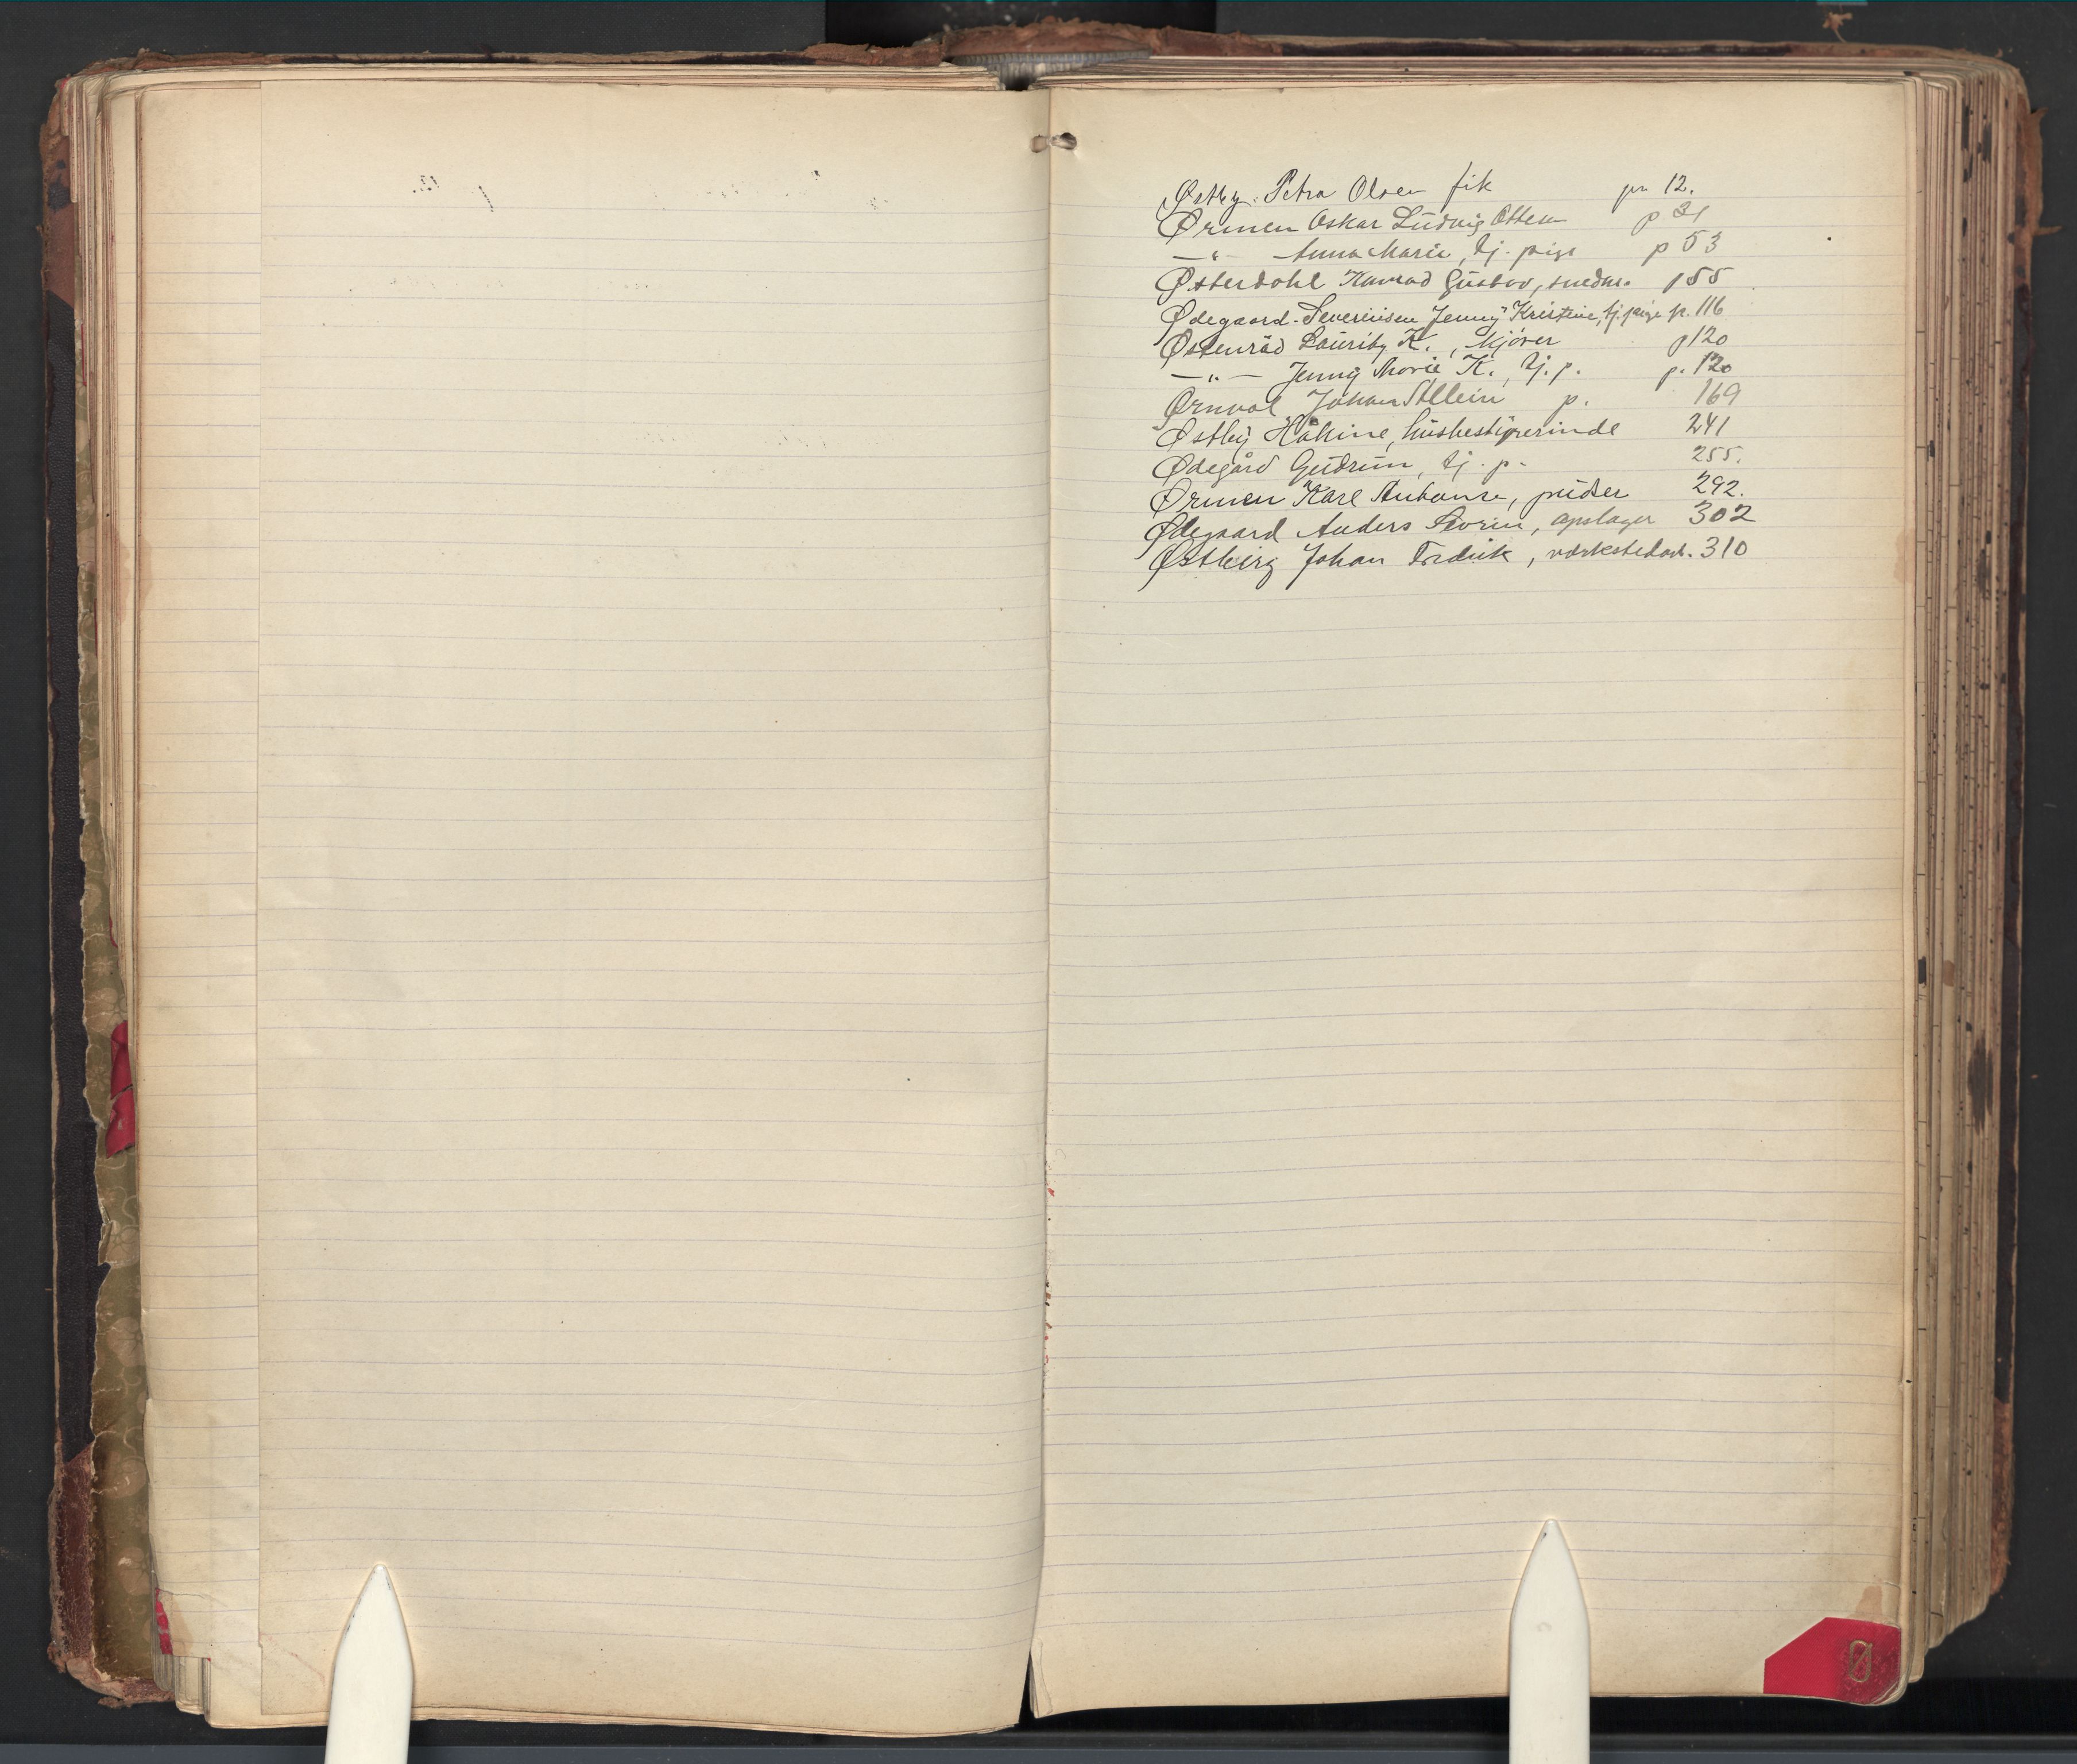 Østby. Petra Olsen frk pr. 12.
Ørmen Oskar Ludvig Ottesen p 31
—"— Anna Marie, tj. pige p 53
Østerdahl Konrad Gustav, snedk. p 55
Ødegaard-Severinsen Jenny Kristine, tj. pige p. 116
Østenrød Lauritz K., kjører p 120
—"— Jenny Marie K., tj. p. p. 120
Ørnvol Johan p. 169
Østby Håkine, husbestyrerinde 241
Ødegård Gudrun, tj. p. 255.
Ørmen Karl 292.
Ødegaard Anders, opslager 302
Østberg Johan Fredrik, verkstedarb. 310
Ø